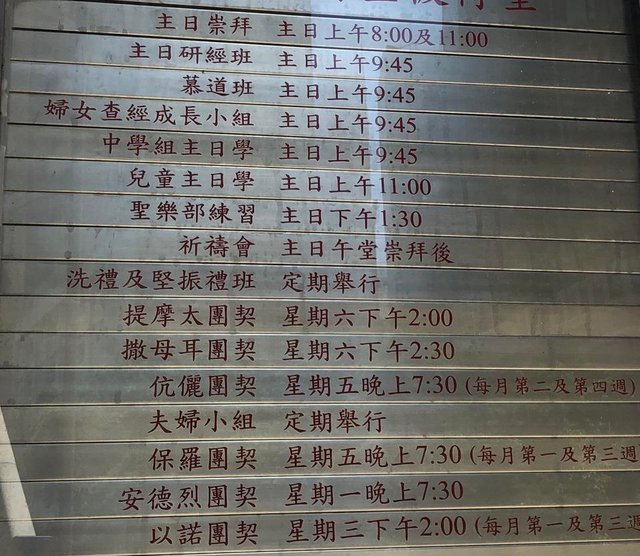 主日崇拜 主日上午8:00及11:00
主日研經班 主日上午9:45
慕道班 主日上午9:45
婦女查經成長小組 主日上午9:45
中學組主日學 主日上午9:45
兒童主日學 主日上午11:00
聖樂部練習 主日下午1:30
祈禱會 主日午堂崇拜後
洗禮及堅振禮班 定期舉行
提摩太團契 星期六下午2:00
撒母耳團契 星期六下午2:30
伉儷團契 星期五晚上7:30 (每月第二及第四週)
夫婦小組 定期舉行
保羅團契 星期五晚上7:30 (每月第一及第三週
安德烈團契 星期一晚上7:30
以諾團契 星期三下午2:00 (每月第一及第三週